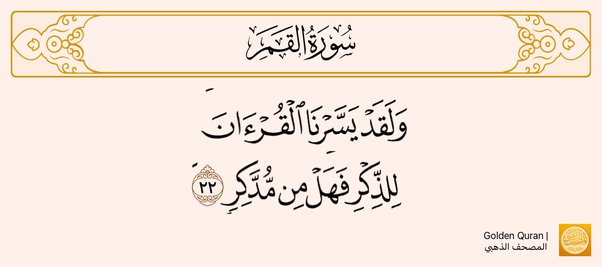 سُورَةُ القَمَرِ
وَلَقَدْ يَسَّرْنَا ٱلْقُرْءَانَ
لِلذِّكْرِ فَهَلْ مِن مُّدَّكِرٍ ٢٢
Golden Quran |
المصحف الذهبي